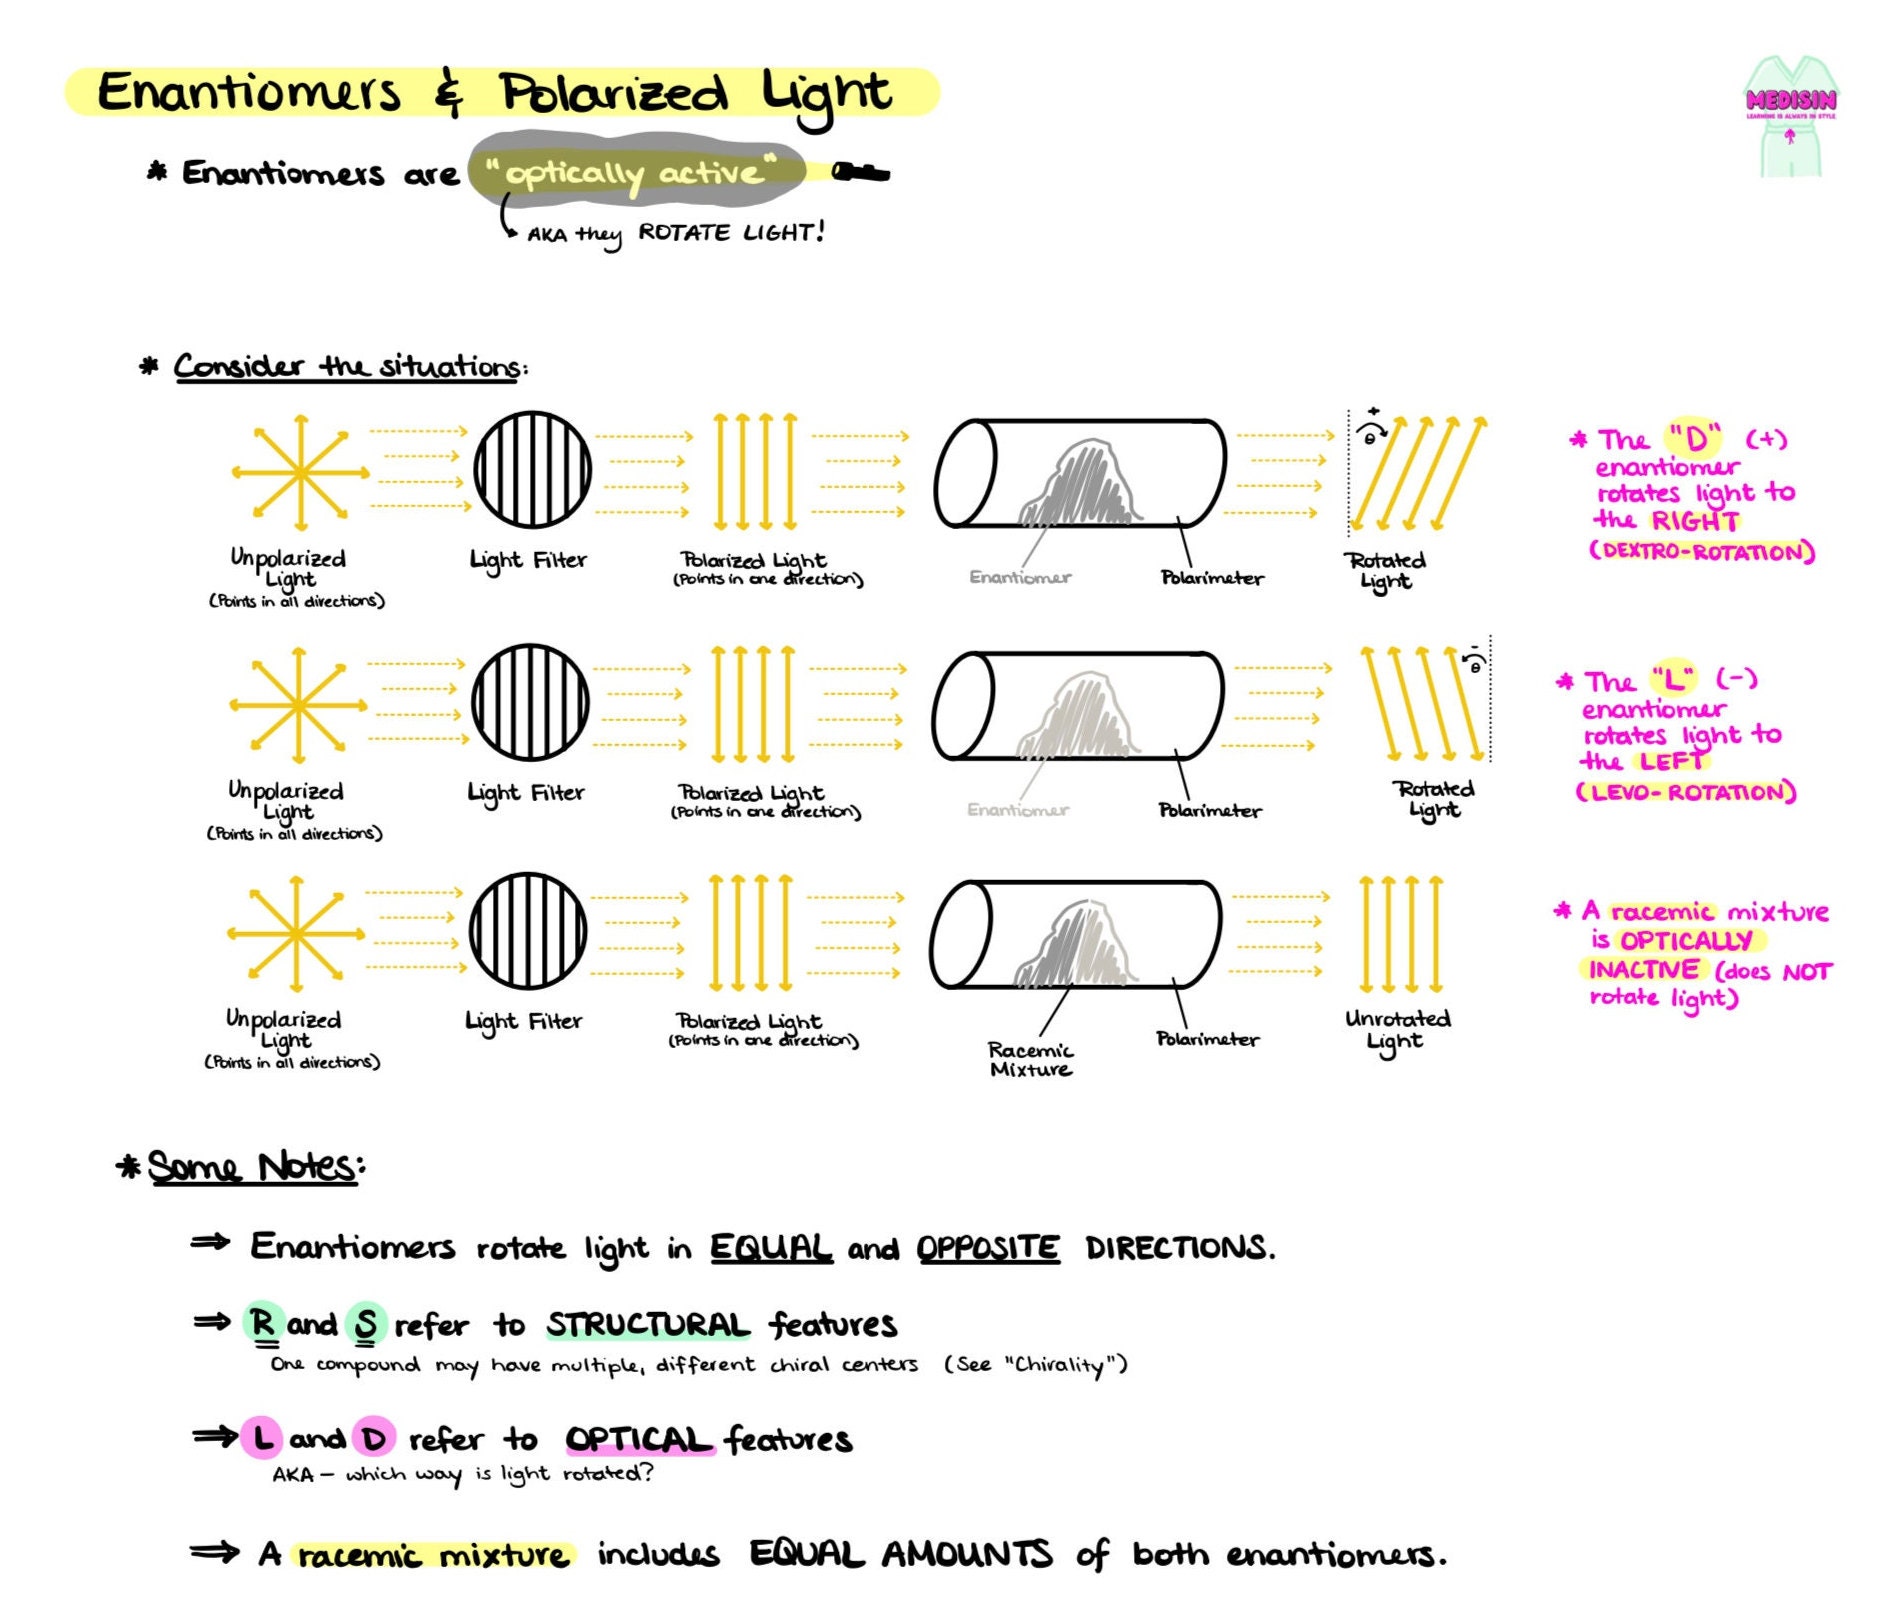 Enantiomers & Polarized Light
MEDISIN
LEARNING IS ALWAYS IN STYLE
* Enantiomers are "optically active"
AKA they ROTATE LIGHT!
* Consider the situations:
Unpolarized
Light
(Points in all directions)
Light Filter
Polarized Light
(Points in one direction)
Enantiomer
Polarimeter
+
θ
Rotated
Light
* The "D" (+)
enantiomer
rotates light to
the RIGHT
(DEXTRO-ROTATION)
Unpolarized
Light
(Points in all directions)
Light Filter
Polarized Light
(Points in one direction)
Enantiomer
Polarimeter
-
θ
Rotated
Light
* The "L" (-)
enantiomer
rotates light to
the LEFT
(LEVO-ROTATION)
Unpolarized
Light
(Points in all directions)
Light Filter
Polarized Light
(Points in one direction)
Racemic
Mixture
Polarimeter
Unrotated
Light
* A racemic mixture
is OPTICALLY
INACTIVE (does NOT
rotate light)
* Some Notes:
⇒ Enantiomers rotate light in EQUAL and OPPOSITE DIRECTIONS.
⇒ R and S refer to STRUCTURAL features
One compound may have multiple, different chiral centers (See "Chirality")
⇒ L and D refer to OPTICAL features
AKA – which way is light rotated?
⇒ A racemic mixture includes EQUAL AMOUNTS of both enantiomers.